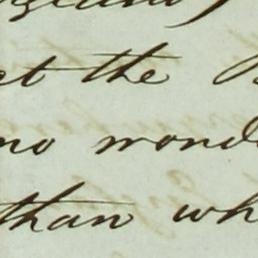 at the
no wond
than wh